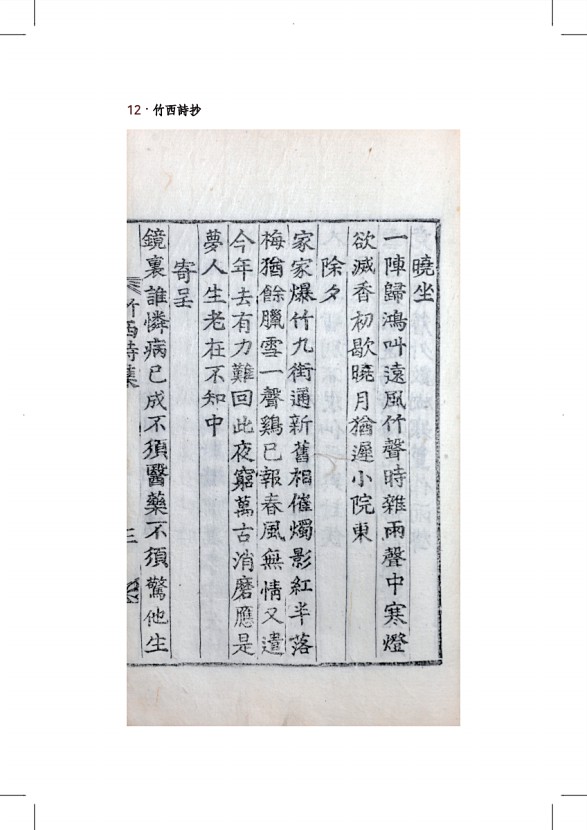 12 · 竹西詩抄
曉坐
一陣歸鴻叫遠風竹聲時雜雨聲中寒燈
欲滅香初歇曉月猶遲小院東
除夕
家家爆竹九街通新舊相催燭影紅半落
梅猶餘臘雪一聲鷄已報春風無情又遣
今年去有力難回此夜窮萬古消磨應是
夢人生老在不知中
寄呈
鏡裏誰憐病已成不須醫藥不須驚他生
竹西詩集
三